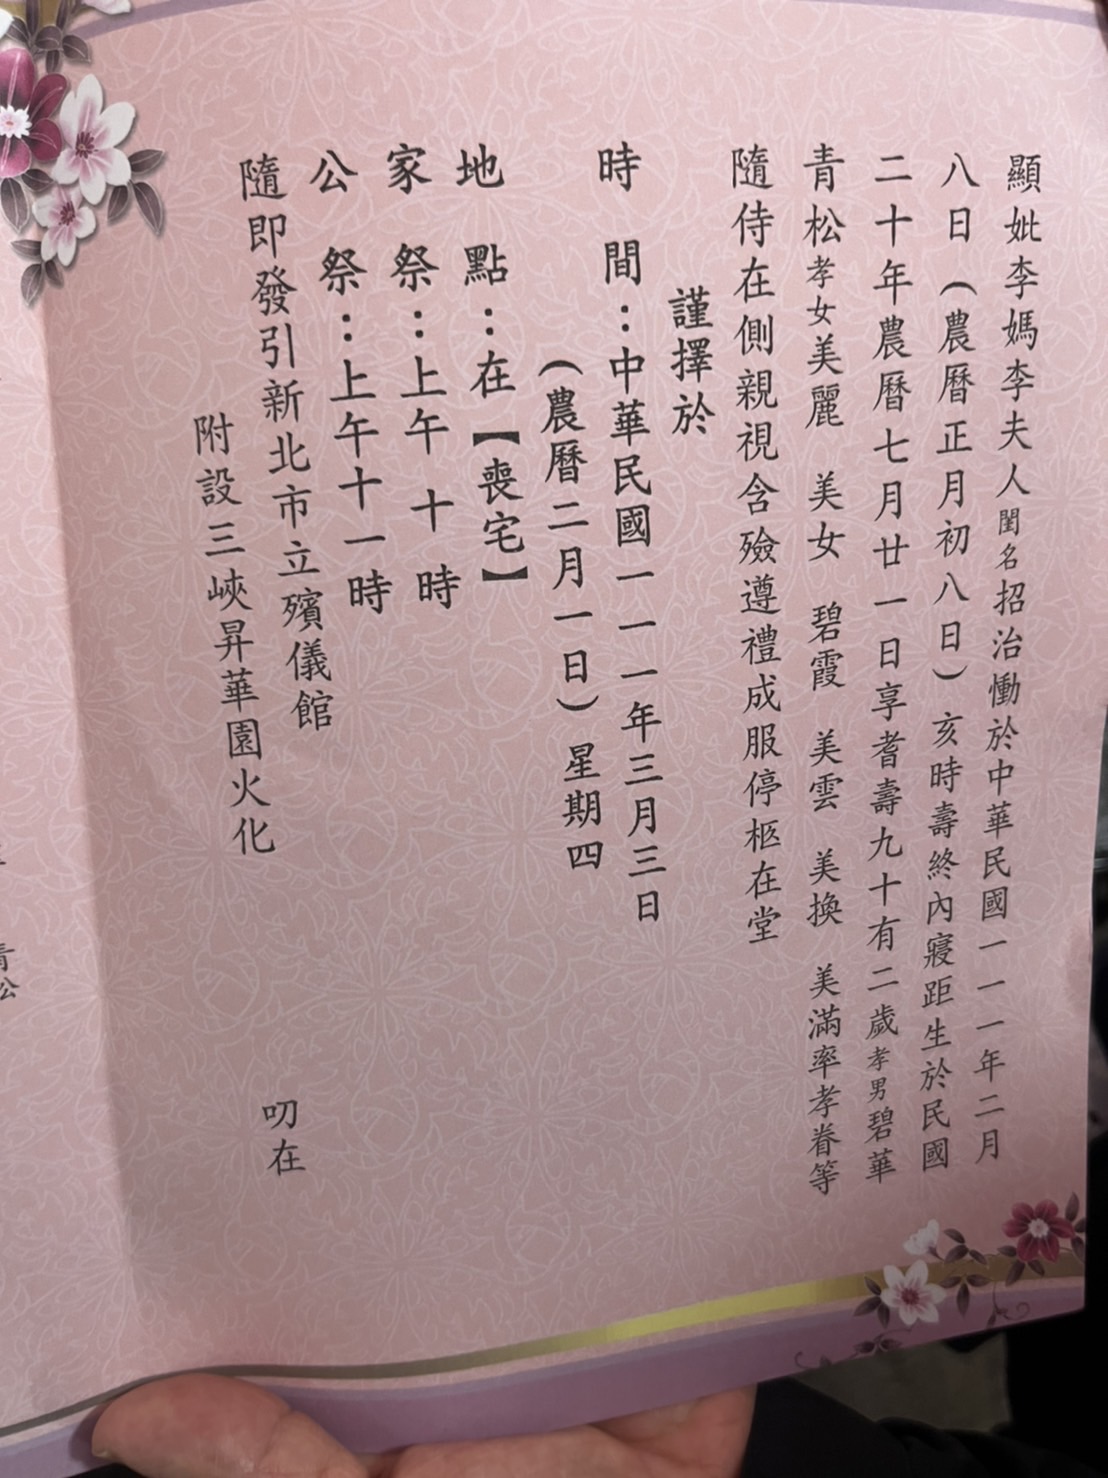 顯妣李媽李夫人閨名招治慟於中華民國一一一年二月
八日（農曆正月初八日）亥時壽終內寢距生於民國
二十年農曆七月廿一日享耆壽九十有二歲孝男碧華
青松孝女美麗　美女　碧霞　美雲　美換　美滿率孝眷等
隨侍在側親視含殮遵禮成服停柩在堂
謹擇於
時　間：中華民國一一一年三月三日
（農曆二月一日）星期四
地　點：在【喪宅】
家　祭：上午　十　時
公　祭：上午十一時
隨即發引新北市立殯儀館
附設三峽昇華園火化
叨在
青松